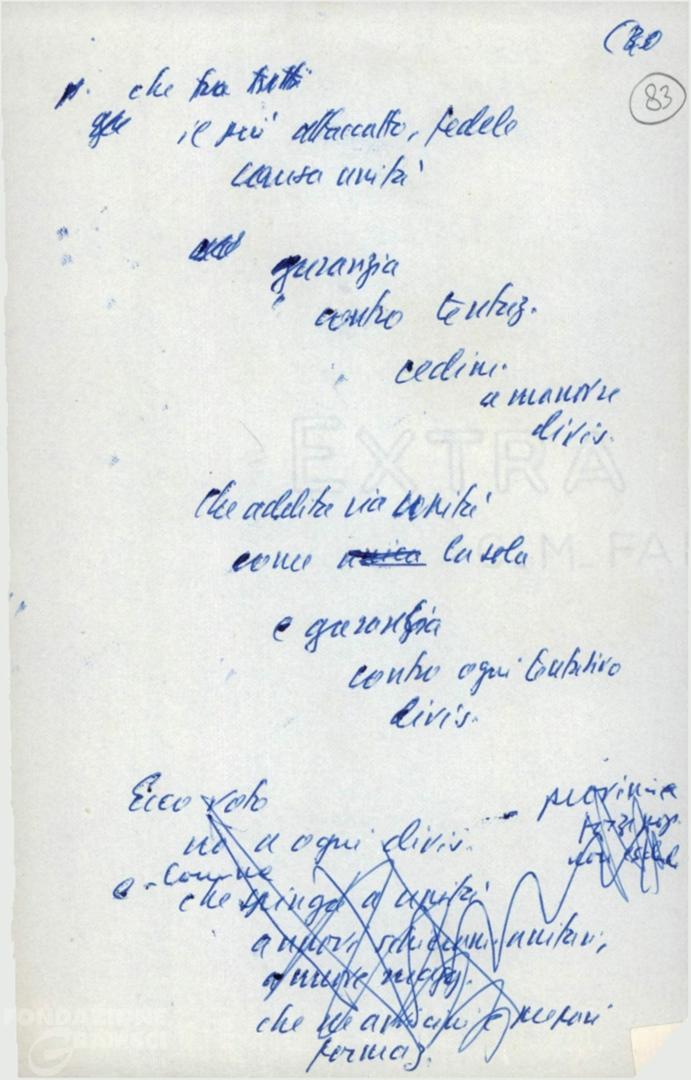 83
che fra tutti
il più attaccato, fedele
causa unità
garanzia
contro tentaz.
cedim.
a manovre
divis.
EXTRA
che addita via unità
come unica la sola
e garanzia
contro ogni tentativo
divis.
Ecco voto
no a ogni divis.
provincia
e - Comune
che spinga a unità
a nuovi schieram. unitari,
a nuove magg.
che
formaz.
FONDAZIONE
GRAMSCI